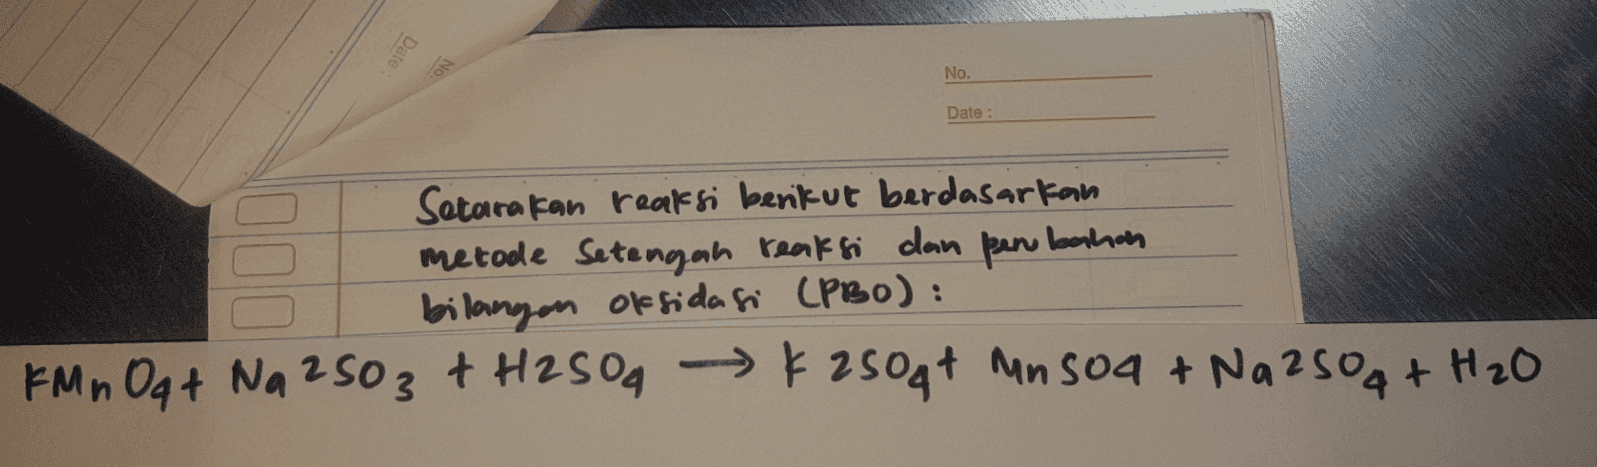 Date :
No.
No.
Date :
Setarakan reaksi berikut berdasarkan
metode Setengah reaksi dan perubahan
bilangan oksidasi (PBO) :
KMnO4 + Na2SO3 + H2SO4 → K2SO4 + MnSO4 + Na2SO4 + H2O